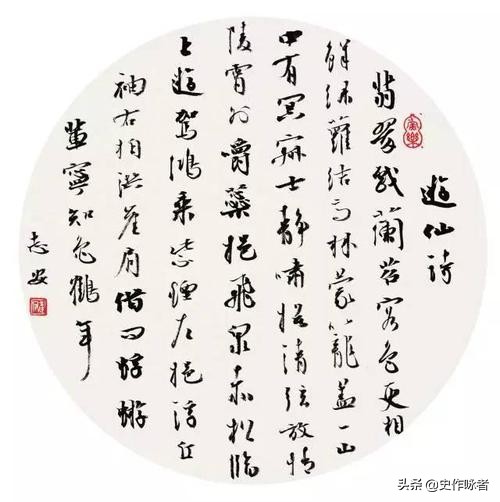 遊仙詩
翡翠戏蘭苕容色更相
鲜绿蘿结高林蒙籠盖一山
中有冥寂士静嘯抚清弦放情
陵霄外嚼蘂挹飛泉赤松临
上遊驾鸿乘紫煙左挹浮丘
袖右拍洪崖肩借问蜉蝣
輩寧知龟鶴年
志安
头条 @史作咏者